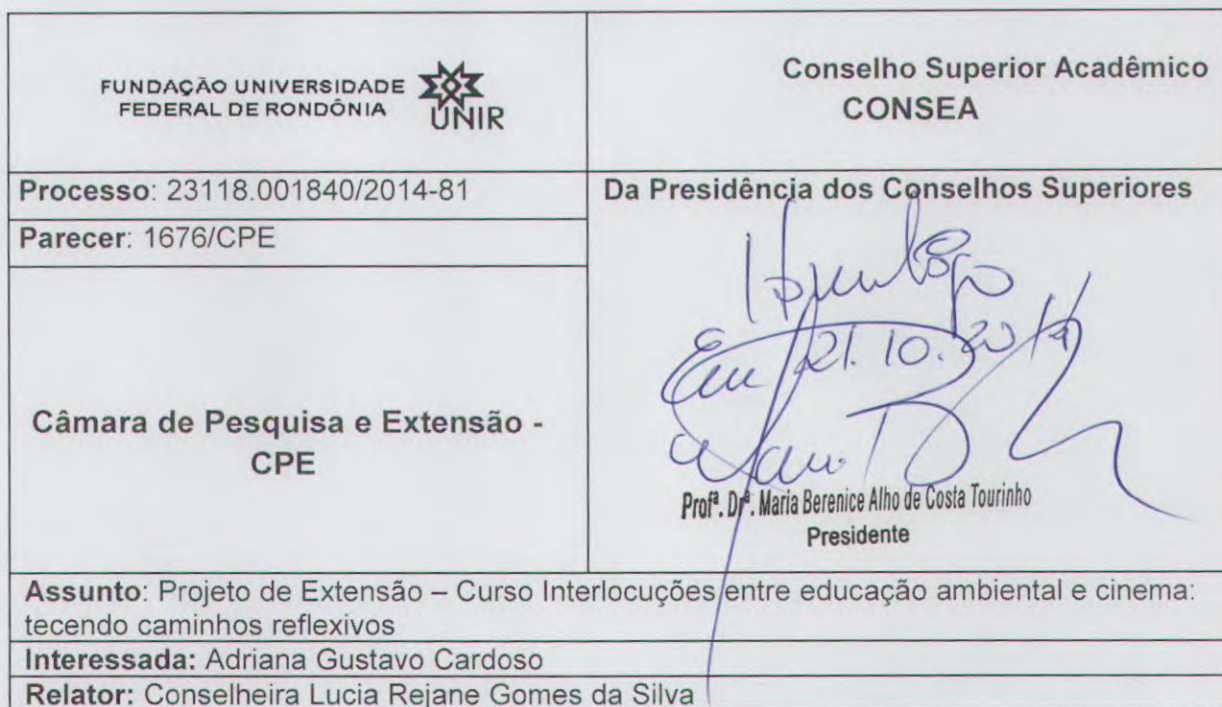 FUNDAÇÃO UNIVERSIDADE
FEDERAL DE RONDÔNIA
UNIR
Conselho Superior Acadêmico
CONSEA
Processo: 23118.001840/2014-81
Parecer: 1676/CPE
Câmara de Pesquisa e Extensão -
CPE
Da Presidência dos Conselhos Superiores
Homologo
Em 21.10.2014
Profª. Drª. Maria Berenice Alho de Costa Tourinho
Presidente
Assunto: Projeto de Extensão – Curso Interlocuções entre educação ambiental e cinema:
tecendo caminhos reflexivos
Interessada: Adriana Gustavo Cardoso
Relator: Conselheira Lucia Rejane Gomes da Silva